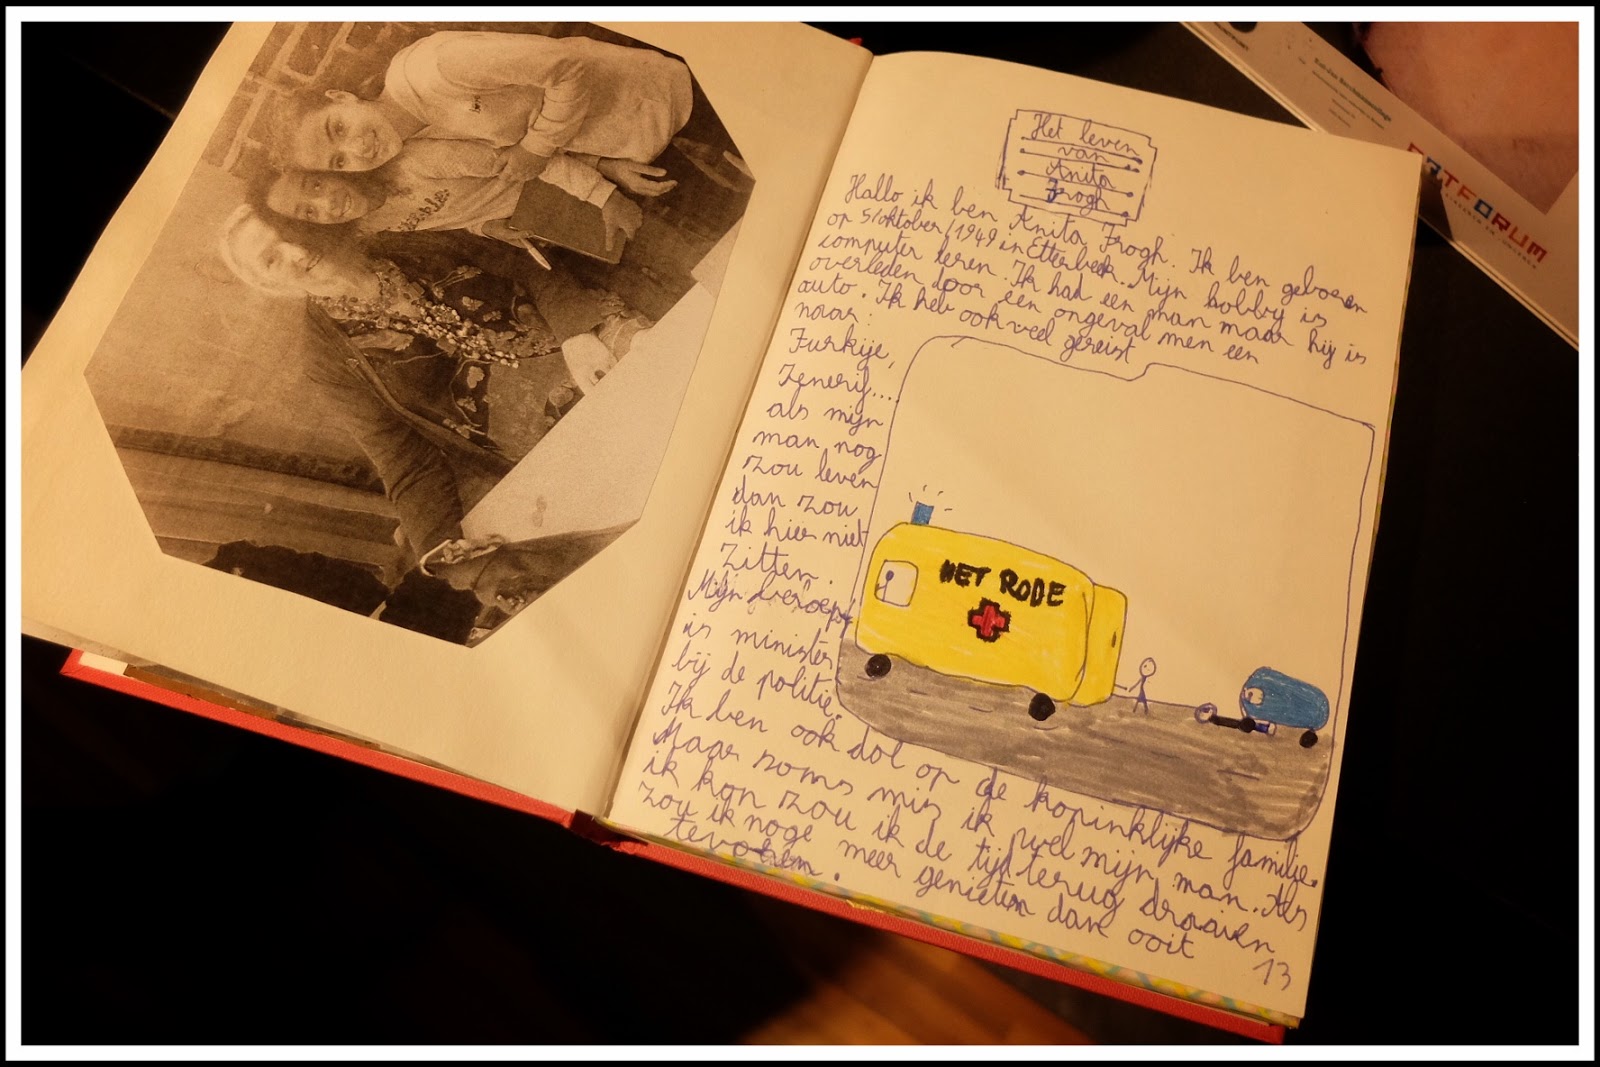 Het leven
van
Anita
Frogh
Hallo ik ben Anita Frogh. Ik ben geboren
op 5/oktober/1949 in Etterbeek. Mijn hobby is
computer leren. Ik had een man maar hij is
overleden door een ongeval men een
auto. Ik heb ook veel gereist
naar:
Turkije,
Tenerif....
als mijn
man nog
zou leven
dan zou
ik hier niet
zitten.
Mijn beroep
is minister
bij de politie.
Ik ben ook dol op de koninklijke familie.
Maar soms mis ik wel mijn man. Als
ik kon zou ik de tijd terug draaien
zou ik noge meer genieten dan ooit
tevoren.
HET RODE
13
ARTFORUM